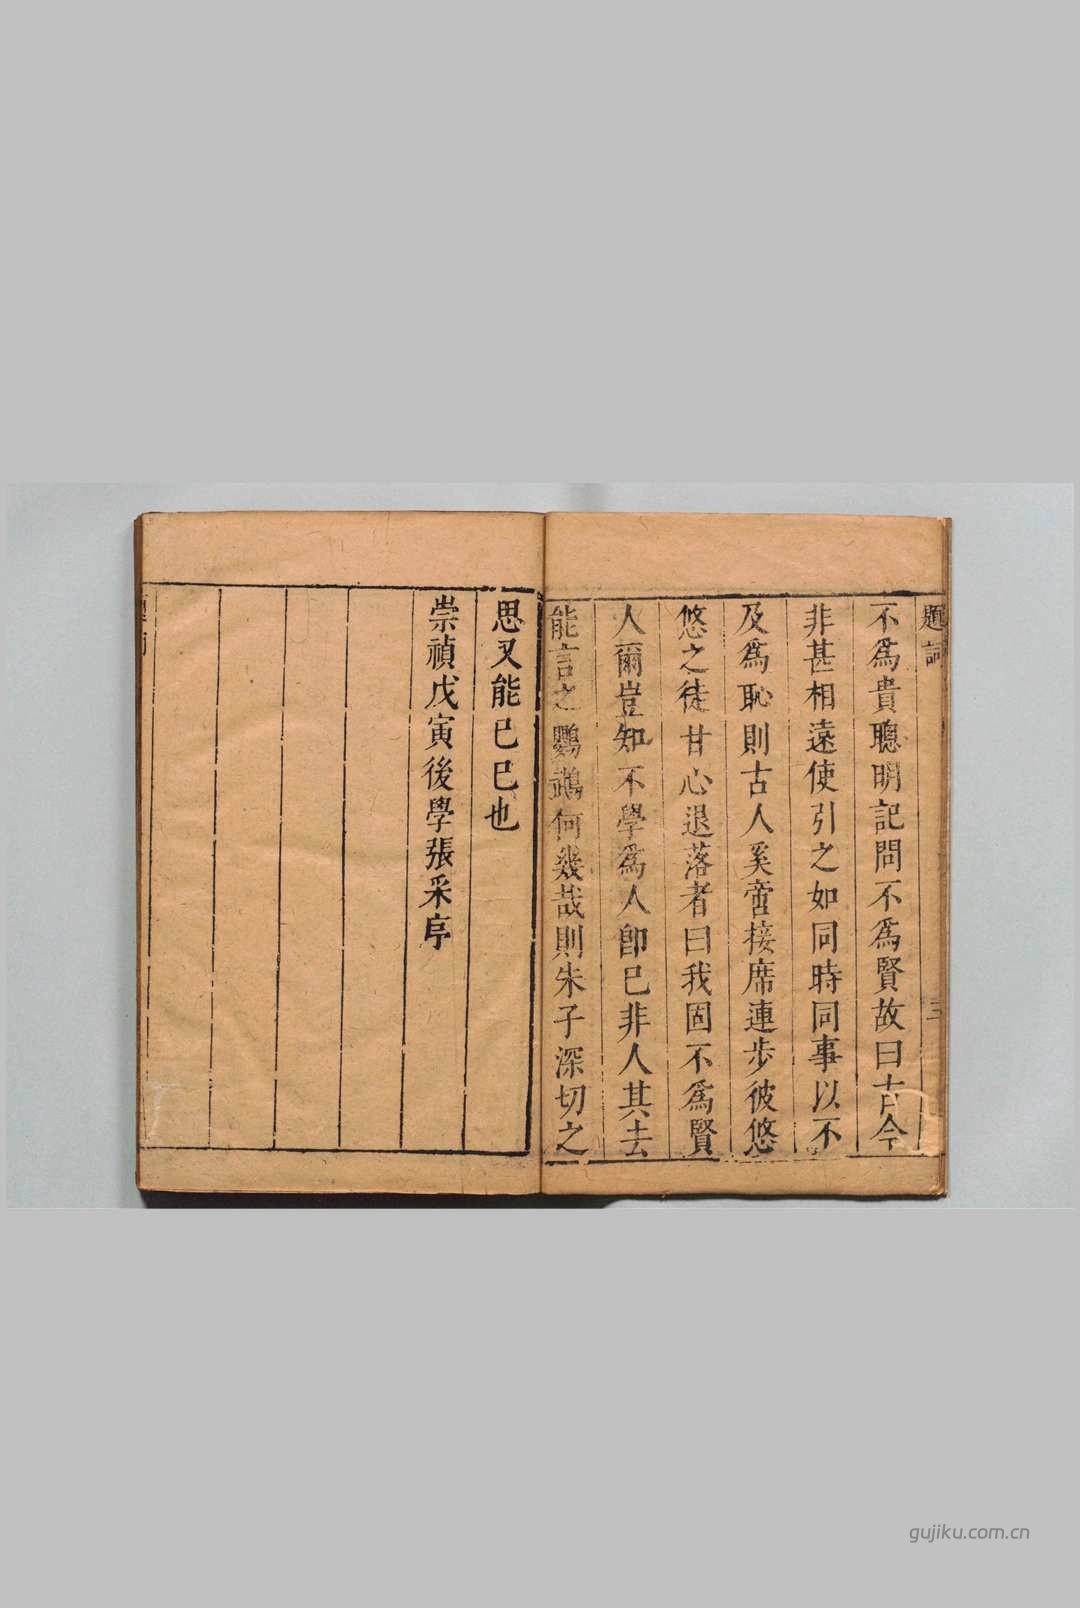 題詞
三
不爲貴聰明記問不爲賢故曰古今
非甚相遠使引之如同時同事以不
及爲恥則古人奚啻接席連步彼悠
悠之徒甘心退落者曰我固不爲賢
人爾豈知不學爲人卽已非人其去
能言之鸚鵡何幾哉則朱子深切之
思又能已已也
崇禎戊寅後學張采序
gujiku.com.cn